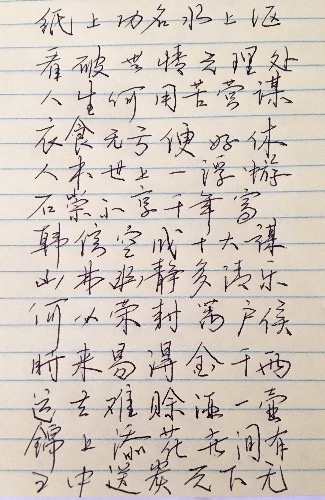 纸上功名水上沤
看破世情无理处
人生何用苦营谋
衣食无亏便好休
人本世上一浮蝣
石崇不享千年富
韩信空成十大谋
山林幽静多清乐
何必荣封万户侯
時来易得金千两
运去难赊酒一壶
錦上添花世间有
雪中送炭天下无